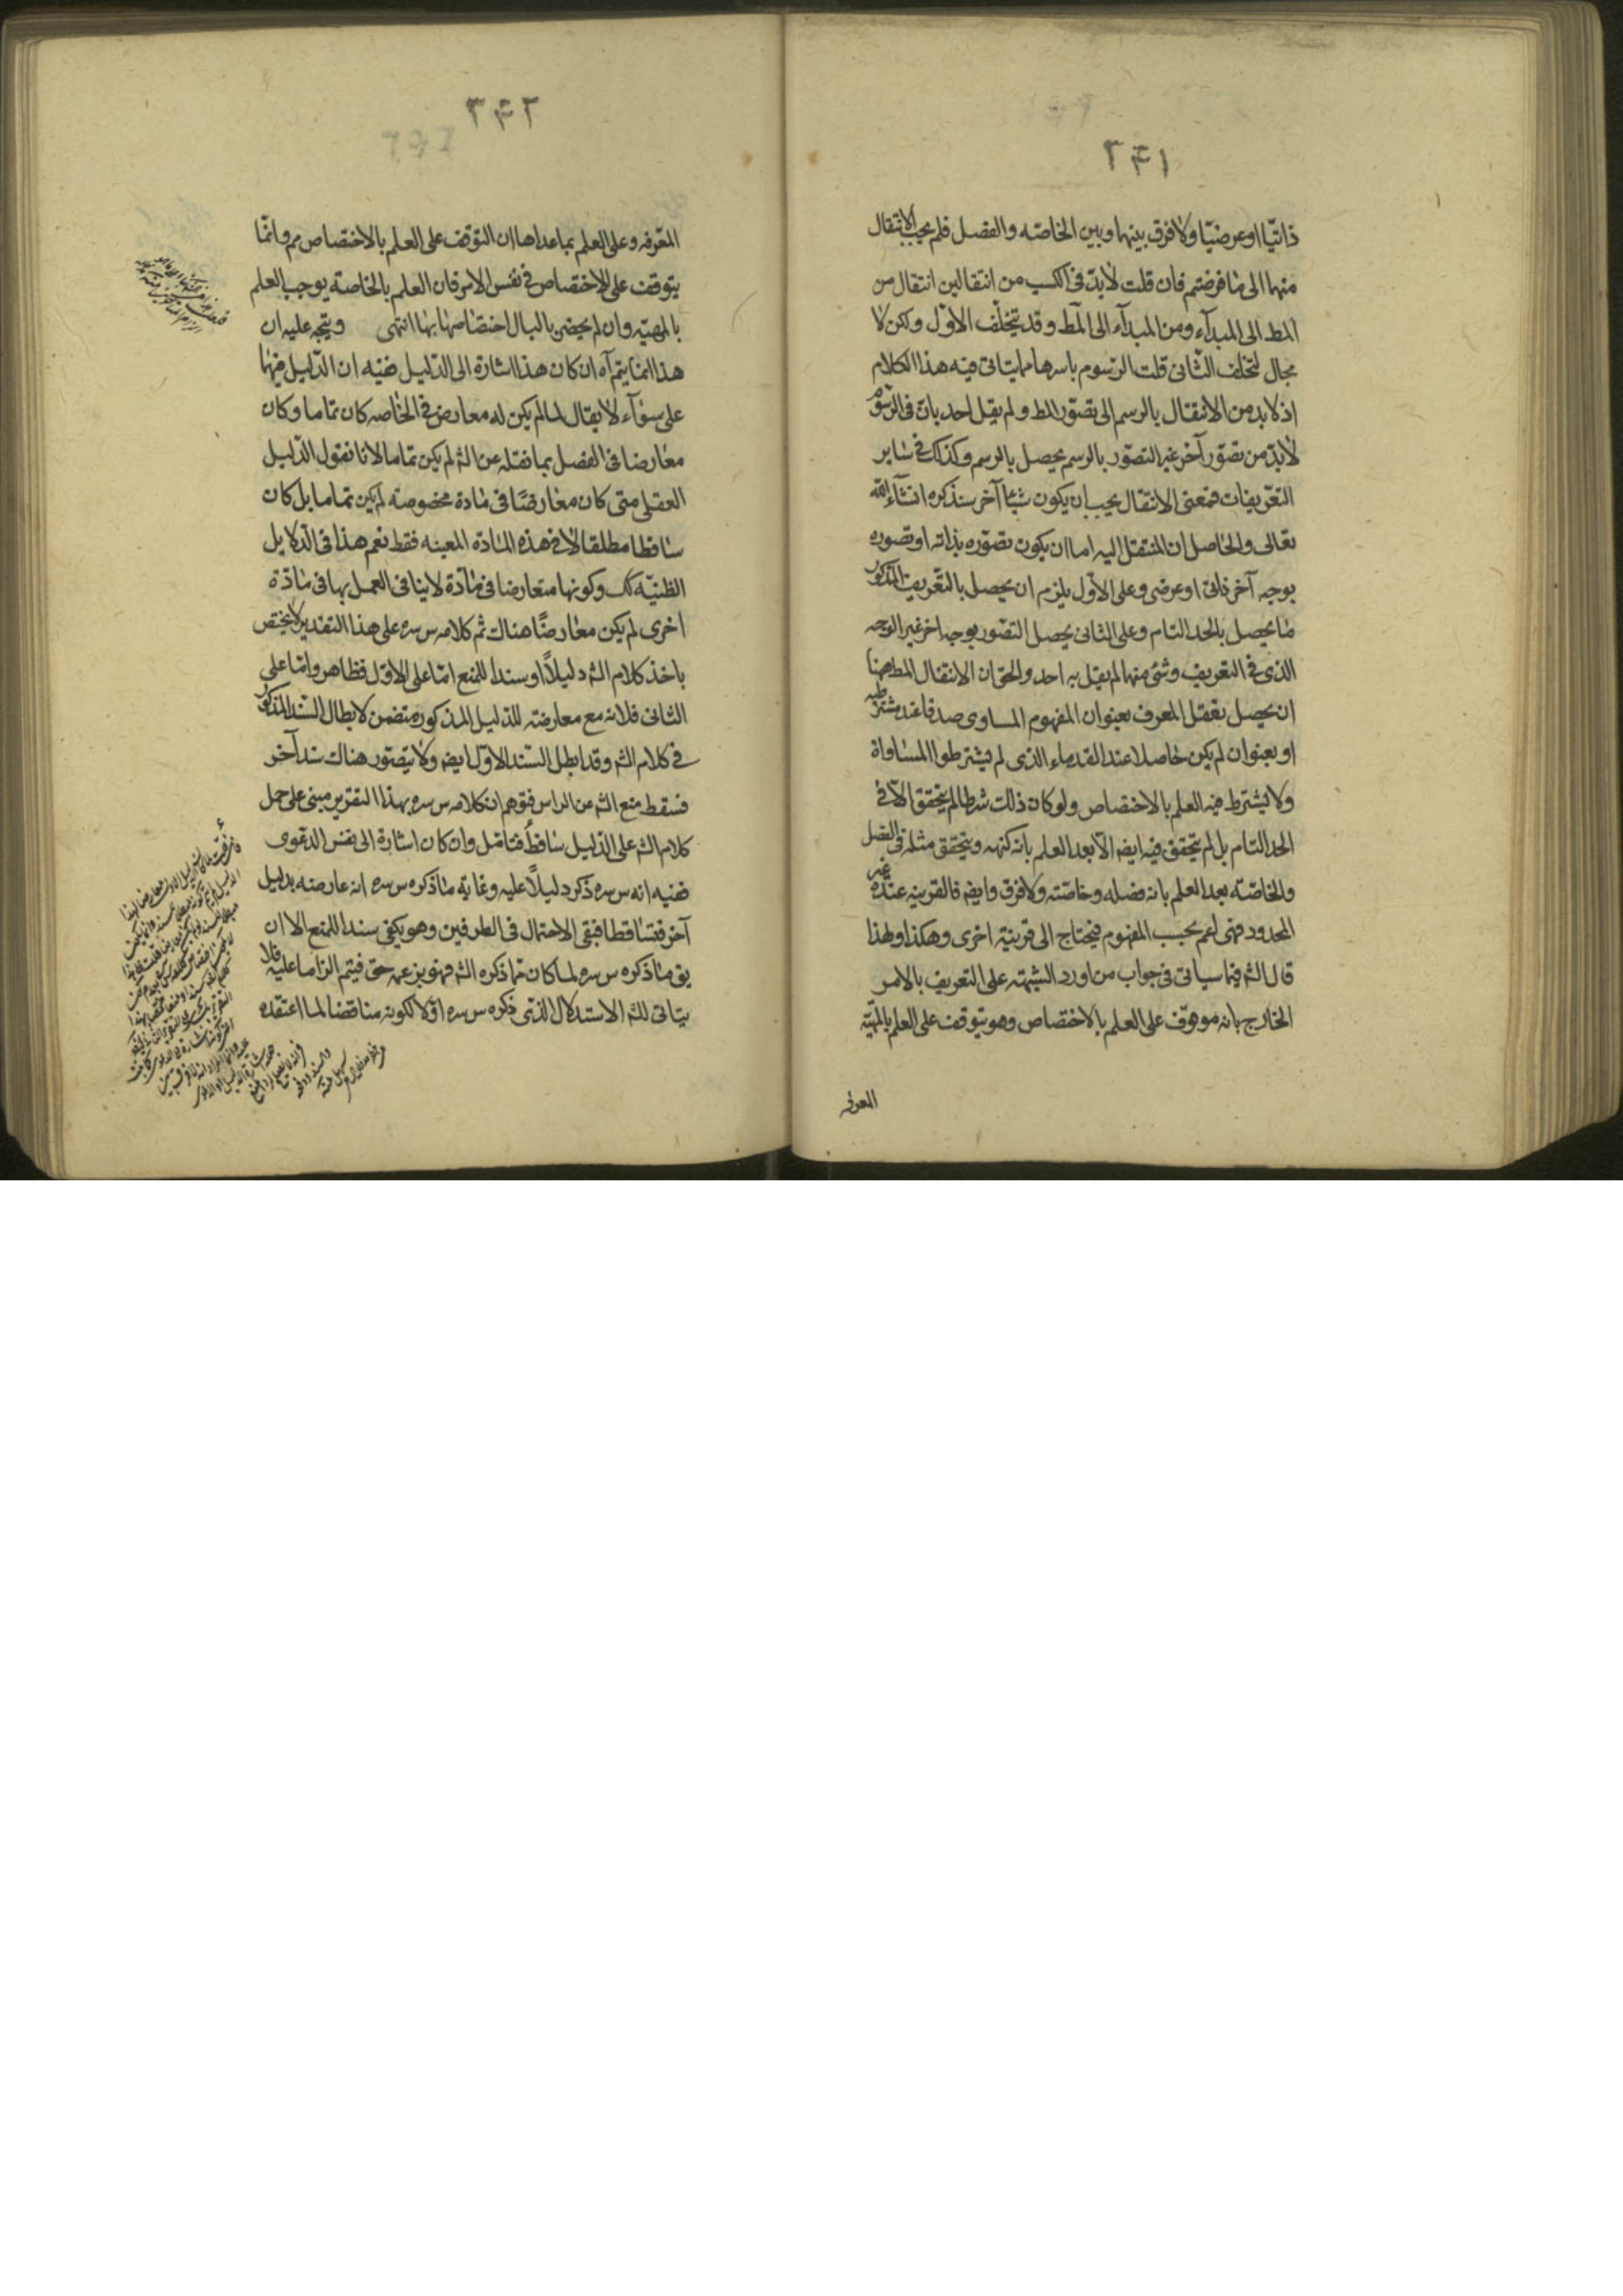 ٢٤١
ذاتيّا او عرضيّا ولا فرق بينها وبين الخاصّه والفصل فلم يجب الانتقال
منها الى ما فرضتم فان قلت لابدّ فى الكسب من انتقالين انتقال من
المط الى المبدآء ومن المبدآء الى المط وقد يتخلّف الاوّل ولكن لا
مجال لتخلف الثّانى قلت الرّسوم باسرها مما يتاتى فيه هذا الكلام
اذ لابد من الانتقال بالرسم الى تصوّر المط ولم يقل احد بان فى الرّسوم
لابدّ من تصوّر آخر غير التصوّر بالرسم يحصل بالرسم وكذلك فى ساير
التعّريفات فمعنى الانتقال يجب ان يكون شيئا آخر سنذكره انشآء الله
تعالى والحاصل ان المنتقل اليه اما ان يكون تصوّره بذاته او تصوره
بوجه آخر ذاتى او عرضى وعلى الاوّل يلزم ان يحصل بالتّعريف المذكور
ما يحصل بالحد التام وعلى الثانى يحصل التصّور بوجه اخر غير الوجه
الذى فى التعريف وشئ منهما لم يقل به احد والحق ان الانتقال المط ههنا
ان يحصل تعقل المعرف بعنوان المفهوم المساوى صدقا عند مشترطيه
او بعنوان لم يكن حاصلا عند القدماء الذى لم يشترطوا المساواة
ولا يشترط فيه العلم بالاختصاص ولو كان ذلك شرطا لم يتحقق الا فى
الحد التام بل لم يتحقق فيه ايضه الّا بعد العلم بانه كنهه ويتحقق مثله فى الفصل
والخاصّة بعد العلم بانه فصله وخاصّته ولا فرق وايضه فالقرينه عنده غير
المحدود فهى اعم بحسب المفهوم فيحتاج الى قرينة اخرى وهكذا ولهذا
قال الشه فيما سياتى فى جواب من اورد الشبهة على التعريف بالامر
الخارج بانه موقوف على العلم بالاختصاص وهو يتوقف على العلم بالمهيّة
المعرفه
٢٤٢
المعّرفه وعلى العلم بما عداها ان التوّقف على العلم بالاختصاص مم وانمّا
يتوقف على الاختصاص فى نفس الامر فان العلم بالخاصة يوجب العلم
بالمهيّه وان لم يحضر بالبال اختصاصها بها انتهى ويتجه عليه ان
هذا انمّا يتم آه ان كان هذا اشارة الى الدّليل ففيه ان الدّليل فيهما
على سوآء لا يقال لما لم يكن له معارض فى الخاصه كان تماما وكان
معارضا فى الفصل بما نقله عن الشه لم يكن تماما لانا نقول الدّليل
العقلى متى كان معارضًا فى مادة مخصوصة لم يكن تماما بل كان
ساقطا مطلقا لا فى هذه المادة المعينه فقط نعم هذا فى الدّلايل
الظنيّه كك وكونها متعارضا فى مادّة لا ينافى العمل بها فى مادّة
اخرى لم يكن معارضًا هناك ثم كلامه س سره على هذا التقدير لا يختص
باخذ كلام الشه دليلًا او سندا للمنع امّا على الاوّل فظاهر وامّا على
الثانى فلانه مع معارضته للدّليل المذكور متضمن لابطال السّند المذكور
فى كلام الشه وقد ابطل السّند الاوّل ايضه ولا يتصّور هناك سند آخر
فسقط منع الشه عن الراس فتوهم ان كلامه س سره بهذا التقرير مبنى على حمل
كلام الشه على الدّليل ساقط فتامّل وان كان اشارة الى نفس الدّعوى
ففيه انه س سره ذكر دليلًا عليه وغاية ما ذكره س سره انه عارضه بدليل
آخر فتساقطا فبقى الاحتمال فى الطرفين وهو يكفى سندا للمنع الا ان
يق ما ذكره س سره لما كان مما ذكره الشه فهو بزعمه حق فيتم الزاما عليه فلا
يتاتى للشه الاستدلال الذى ذكره س سره اوّلا لكونه مناقضا لما اعتقده